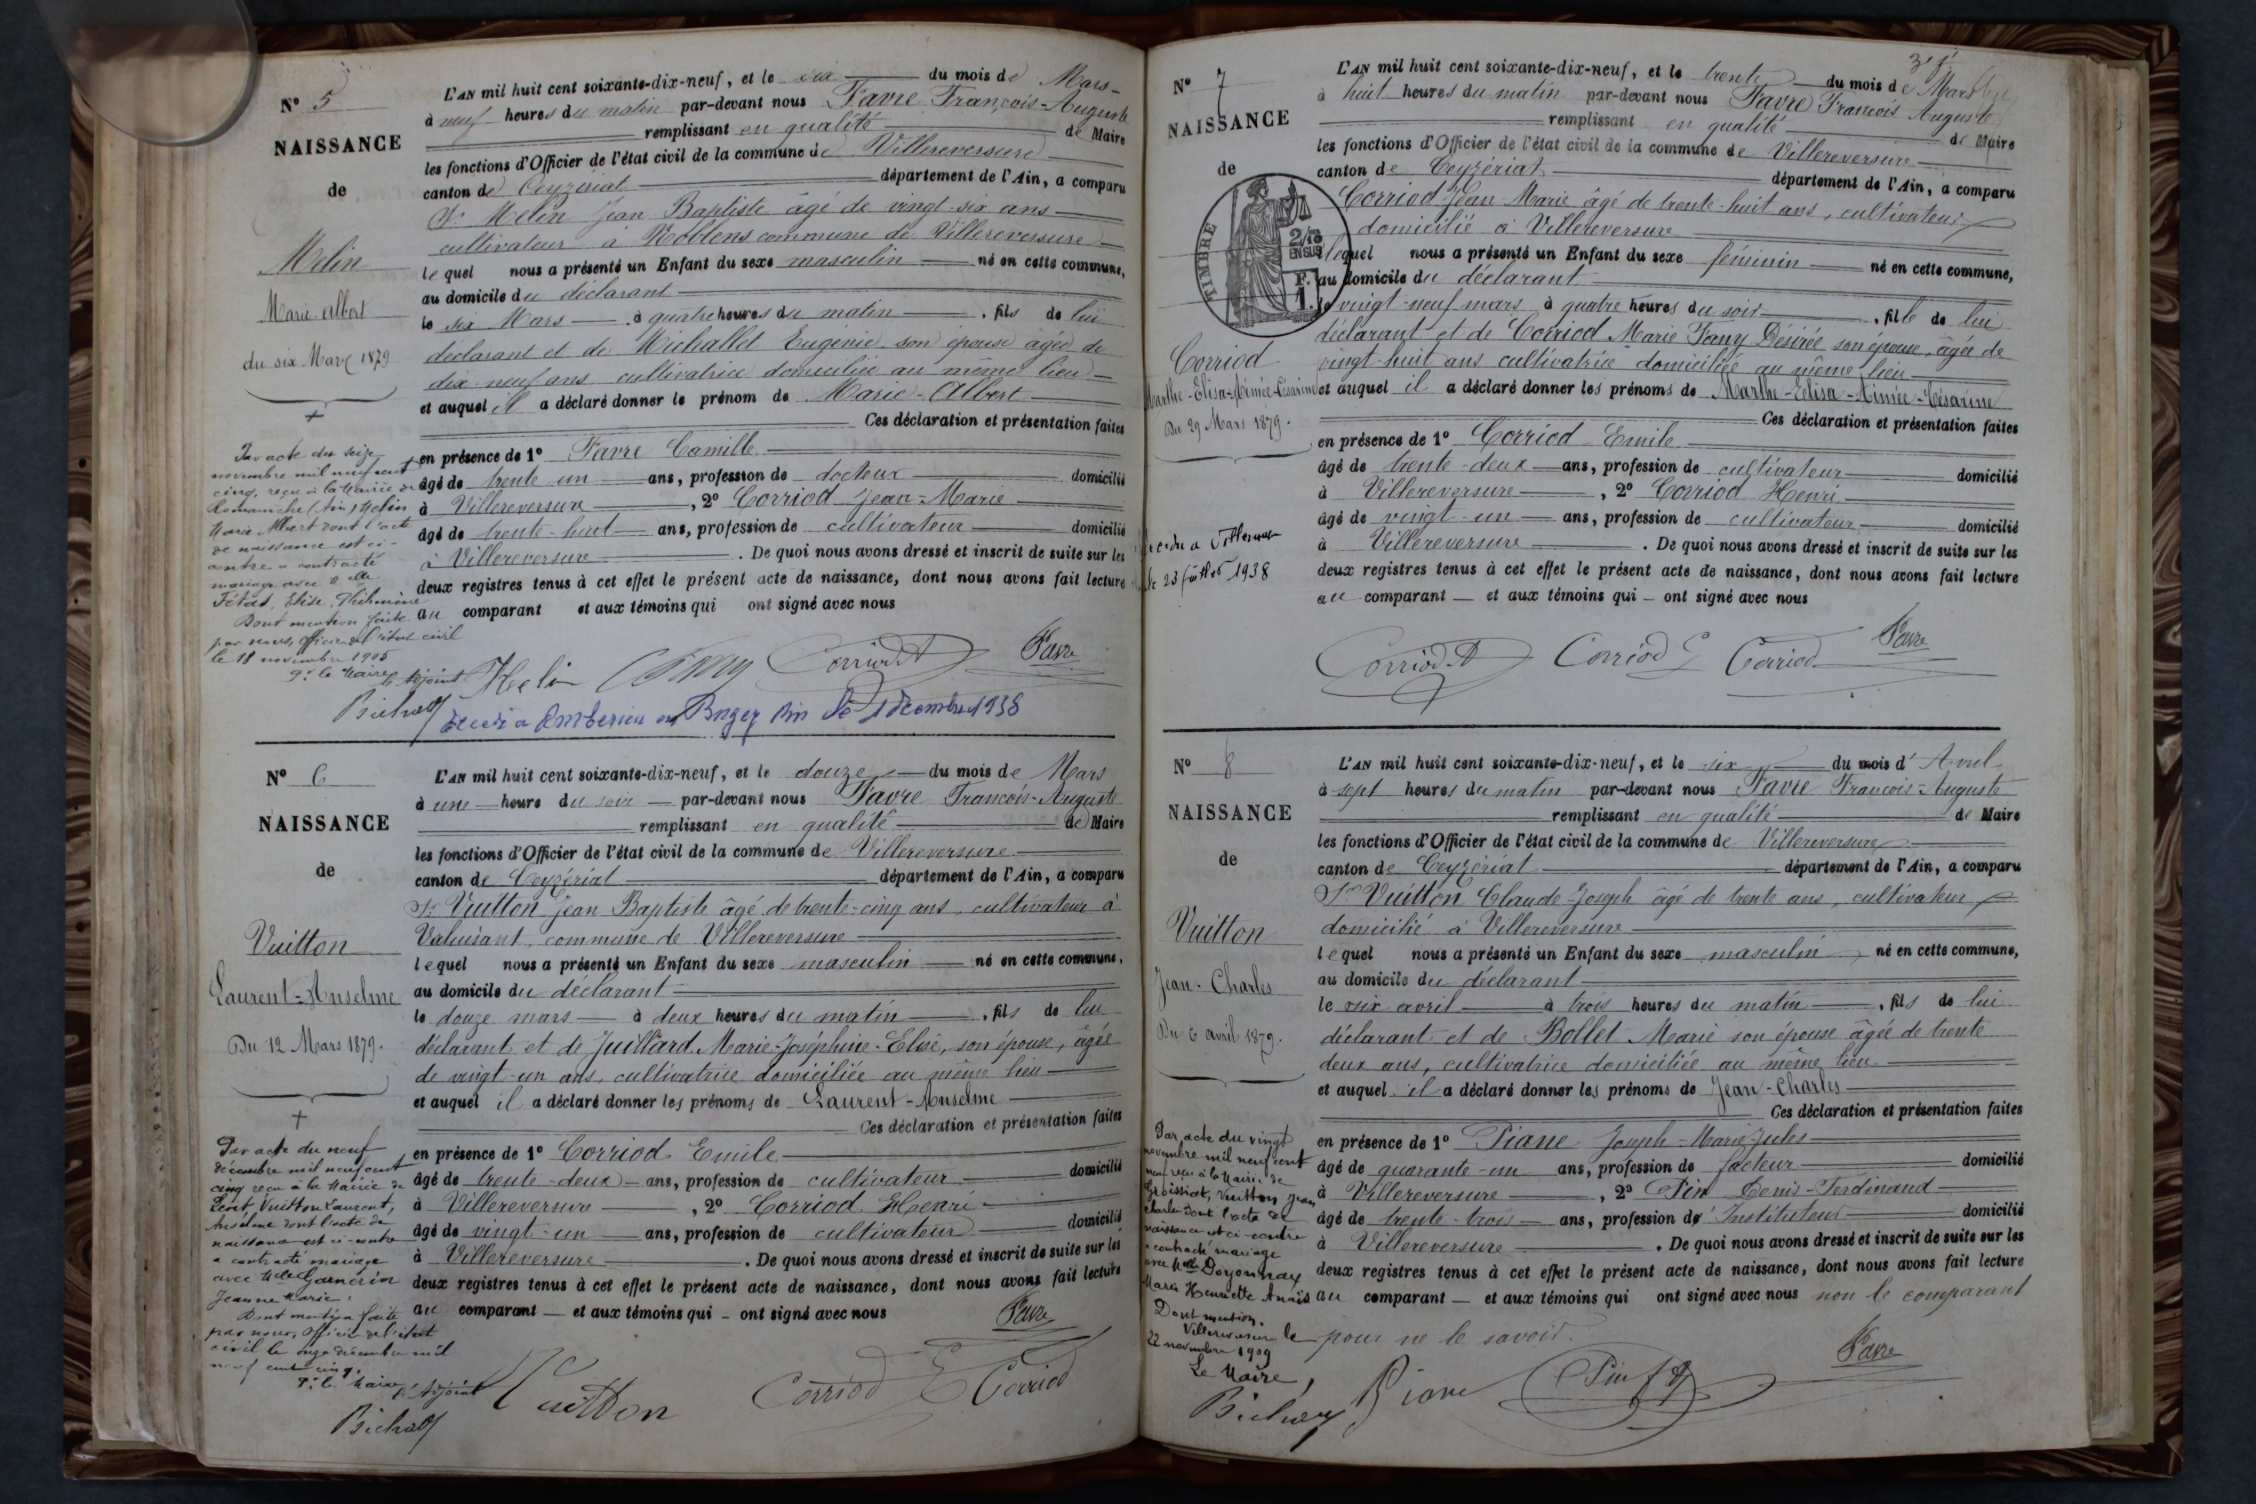 Nº 5
NAISSANCE
de
Melin
Marie Albert
du six Mars 1879
L'AN mil huit cent soixante-dix-neuf, et le six du mois de Mars
à neuf heures du matin par-devant nous Favre François-Auguste
remplissant en qualité de Maire
les fonctions d'Officier de l'état civil de la commune de Villereversure
canton de Ceyzériat département de l'Ain, a comparu
Sr Melin Jean Baptiste âgé de vingt-six ans
cultivateur à Noblens commune de Villereversure
lequel nous a présenté un Enfant du sexe masculin né en cette commune,
au domicile du déclarant
le six Mars à quatre heures du matin, fils de lui
déclarant et de Michallet Eugénie son épouse âgée de
dix-neuf ans cultivatrice domiciliée au même lieu
et auquel il a déclaré donner le prénom de Marie-Albert
Ces déclaration et présentation faites
en présence de 1º Favre Camille
âgé de trente un ans, profession de docteur domicilié
à Villereversure, 2º Corriod Jean-Marie
âgé de trente-huit ans, profession de cultivateur domicilié
à Villereversure. De quoi nous avons dressé et inscrit de suite sur les
deux registres tenus à cet effet le présent acte de naissance, dont nous avons fait lecture
au comparant et aux témoins qui ont signé avec nous
Par acte du seize
novembre mil neuf cent
cinq, reçu à la Mairie de
Romanèche (Ain) Melin
Marie Albert dont l'acte
de naissance est ci-
contre a contracté
mariage avec Melle
Tétat, Elise, Philomène
Dont mention faite
par nous, officier de l'état civil
le 18 novembre 1905
Pr le Maire
l'Adjoint
Bichat
Melin Corriod Favre
Décédé a Amberieu en Bugey Ain le 1 décembre 1938
Nº 6
NAISSANCE
de
Vuitton
Laurent-Anselme
Du 12 Mars 1879.
L'AN mil huit cent soixante-dix-neuf, et le douze du mois de Mars
à une heure du soir par-devant nous Favre François-Auguste
remplissant en qualité de Maire
les fonctions d'Officier de l'état civil de la commune de Villereversure
canton de Ceyzériat département de l'Ain, a comparu
Sr Vuitton Jean Baptiste âgé de trente-cinq ans, cultivateur à
Valuisant, commune de Villereversure
lequel nous a présenté un Enfant du sexe masculin né en cette commune,
au domicile du déclarant
le douze mars à deux heures du matin, fils de lui
déclarant et de Juillard Marie-Joséphine-Elise, son épouse, âgée
de vingt-un ans, cultivatrice domiciliée au même lieu
et auquel il a déclaré donner les prénoms de Laurent-Anselme
Ces déclaration et présentation faites
en présence de 1º Corriod Emile
âgé de trente-deux ans, profession de cultivateur domicilié
à Villereversure, 2º Corriod Henri
âgé de vingt-un ans, profession de cultivateur domicilié
à Villereversure. De quoi nous avons dressé et inscrit de suite sur les
deux registres tenus à cet effet le présent acte de naissance, dont nous avons fait lecture
au comparant et aux témoins qui ont signé avec nous
Par acte du neuf
décembre mil neuf cent
cinq reçu à la Mairie de
Vuitton Laurent,
Anselme dont l'acte de
naissance est ci-contre
a contracté mariage
avec Melle Garnerin
Jeanne Marie.
Dont mention faite
par nous, officier de l'état
civil le onze décembre mil
neuf cent cinq.
Pr le Maire
l'Adjoint
Bichat
Favre
Vuitton Corriod E Corriod
Nº 7
NAISSANCE
de
TIMBRE
2/10 EN SUS
F. 1.
Corriod
Marthe-Elisa-Aimée-Césarine
Du 29 Mars 1879.
L'AN mil huit cent soixante-dix-neuf, et le trente du mois de Mars
à huit heures du matin par-devant nous Favre François Auguste
remplissant en qualité de Maire
les fonctions d'Officier de l'état civil de la commune de Villereversure
canton de Ceyzériat département de l'Ain, a comparu
Corriod Jean-Marie âgé de trente-huit ans, cultivateur
domicilié à Villereversure
lequel nous a présenté un Enfant du sexe féminin né en cette commune,
au domicile du déclarant
le vingt-neuf mars à quatre heures du soir, fille de lui
déclarant et de Corriod Marie Fany Désirée son épouse, âgée de
vingt-huit ans cultivatrice domiciliée au même lieu
et auquel il a déclaré donner les prénoms de Marthe-Elisa-Aimée-Césarine
Ces déclaration et présentation faites
en présence de 1º Corriod Emile
âgé de trente-deux ans, profession de cultivateur domicilié
à Villereversure, 2º Corriod Henri
âgé de vingt-un ans, profession de cultivateur domicilié
à Villereversure. De quoi nous avons dressé et inscrit de suite sur les
deux registres tenus à cet effet le présent acte de naissance, dont nous avons fait lecture
au comparant et aux témoins qui ont signé avec nous
le 23 1938
Corriod Corriod E Corriod Favre
Nº 8
NAISSANCE
de
Vuitton
Jean-Charles
Du 6 avril 1879.
L'AN mil huit cent soixante-dix-neuf, et le six du mois d'Avril
à sept heures du matin par-devant nous Favre François-Auguste
remplissant en qualité de Maire
les fonctions d'Officier de l'état civil de la commune de Villereversure
canton de Ceyzériat département de l'Ain, a comparu
Sr Vuitton Claude-Joseph âgé de trente ans, cultivateur
domicilié à Villereversure
lequel nous a présenté un Enfant du sexe masculin né en cette commune,
au domicile du déclarant
le six avril à trois heures du matin, fils de lui
déclarant et de Bollet Marie son épouse âgée de trente
deux ans, cultivatrice domiciliée au même lieu
et auquel il a déclaré donner les prénoms de Jean-Charles
Ces déclaration et présentation faites
en présence de 1º Piane Joseph-Marie-Jules
âgé de quarante-un ans, profession de facteur domicilié
à Villereversure, 2º Pin Denis-Ferdinand
âgé de trente-trois ans, profession d'Instituteur domicilié
à Villereversure. De quoi nous avons dressé et inscrit de suite sur les
deux registres tenus à cet effet le présent acte de naissance, dont nous avons fait lecture
au comparant et aux témoins qui ont signé avec nous non le comparant
pour ne le savoir.
Par acte du vingt
novembre mil neuf cent
neuf reçu à la Mairie de
Groissiat, Vuitton Jean
Charles dont l'acte de
naissance est ci-contre
a contracté mariage
avec Melle Doyonnax
Maria Henriette Anaïs
Dont mention.
Villereversure le
22 novembre 1909
Le Maire,
Bichat
Piane Pin Favre